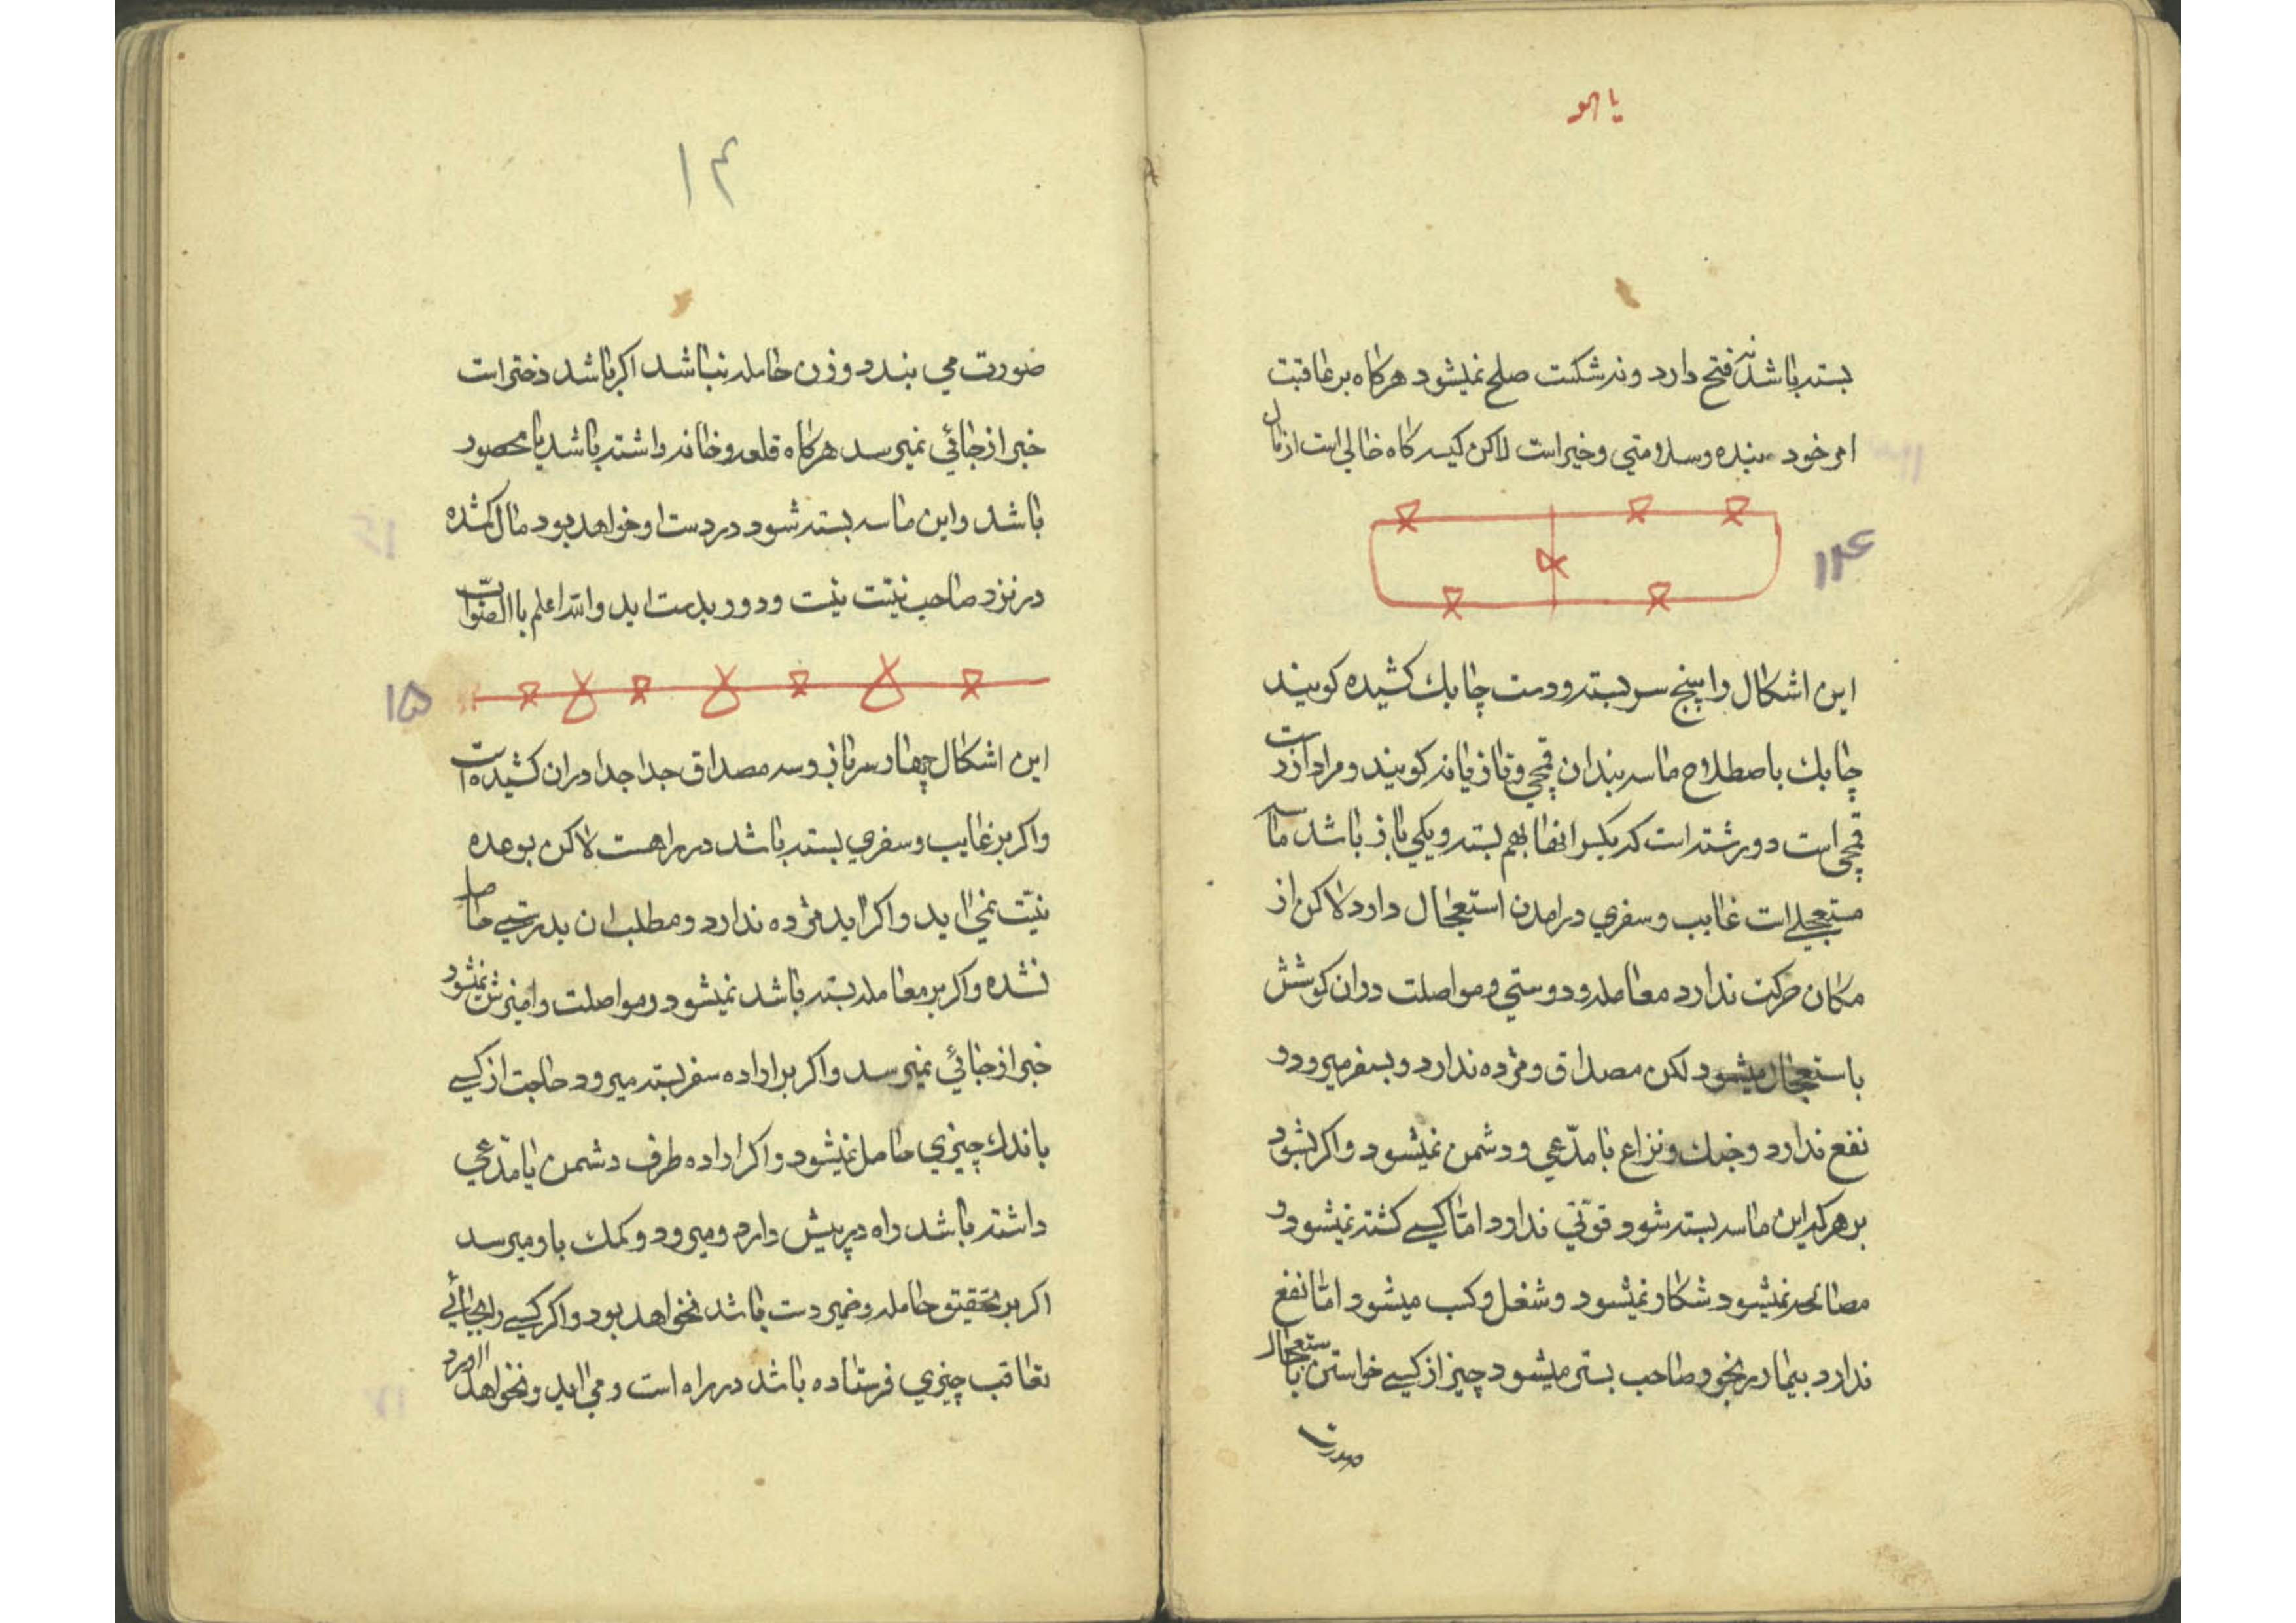 یا هو
بسته باشد نه فتح دارد و نه شکست صلح نمیشود هرکاه بر عاقبت
امر خود ببنده و سلامتی و خیر است لاکن کیسه کاه خالی است از مال
۱۴
این اشکال را پنج سر بسته و دست چابك کشیده کویند
چابك باصطلاح ماسه بندان قمچی و تازیانه کویند و مراد از
قمچی است دو رشته است که یکسر انها بهم بسته و یکی باز باشد ماسه
مستعجلی است غایب و سفری در امدن استعجال دارد لاکن از
مکان حرکت ندارد معامله و دوستی و مواصلت در ان کوشش
باستعجال میشود لکن مصداق و مژده ندارد و بسفر میرود و
نفع ندارد و جنك و نزاع با مدّعی و دشمن نمیشود و اکر بشود
بر هر که این ماسه بسته شود قوّتی ندارد امّا کسی کشته نمیشود و
مصالحه نمیشود شکار نمیشود و شغل و کسب میشود امّا نفع
ندارد بیمار رنجور صاحب بستر میشود چیز از کسی خواستن باستعجال
صورت
۱۴
صورت می بندد و زن حامله نباشد اکر باشد دختر است
خبر از جائی نمیرسد هرکاه قلعه و خانه داشته باشد یا محصور
باشد و این ماسه بسته شود در دست او خواهد بود مال کمشده
در نزد صاحب نیّت نیست و دور بدست اید والله اعلم باالصّواب
۱۵
این اشکال چهار سر باز و سه مصداق جدا جدا در ان کشیده است
و اکر بر غایب و سفری بسته باشد در راهست لاکن بوعده
نیّت نمی اید و اکر اید مژده ندارد و مطلب ان بدرستی حاصل
نشده و اکر بر معامله بسته باشد نمیشود و مواصلت و امیزش نمیشود
خبر از جائی نمیرسد و اکر بر اراده سفر بسته میرود حاجت از کسی
باندك چیزی حاصل نمیشود و اکر اراده طرف دشمن یا مدّعی
داشته باشد راه در پیش دارم و میرود و کمك باو میرسد
اکر بر تحقیق حامله و ضمیر دست باشد نخواهد بود و اکر کسی را بجائی
تعاقب چیزی فرستاده باشد در راه است و می اید و نخواهد اورد